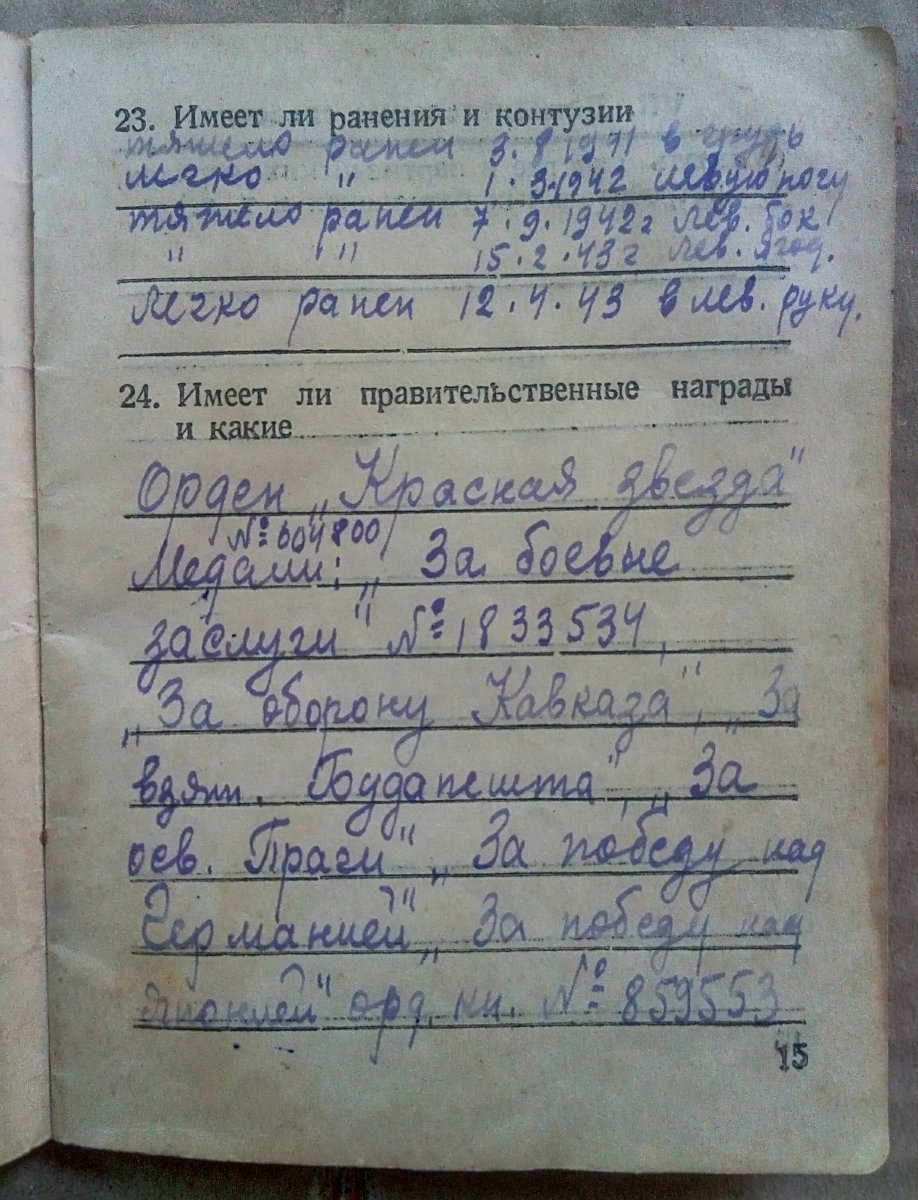 23. Имеет ли ранения и контузии
тяжело ранен 3.8 1941 в грудь
легко " 1.3.1942 левую ногу
тяжело ранен 7.9.1942г лев. бок
" " 15.2.43г лев. ягод.
Легко ранен 12.4.43 в лев. руку.
24. Имеет ли правительственные награды
и какие
Орден „Красная звезда"
№ 604800
Медали: „За боевые
заслуги" № 1833534,
„За оборону Кавказа", „За
взят. Будапешта", „За
осв. Праги" „За победу над
Германией" „За победу над
Японией" орд. кн. № 859553
15